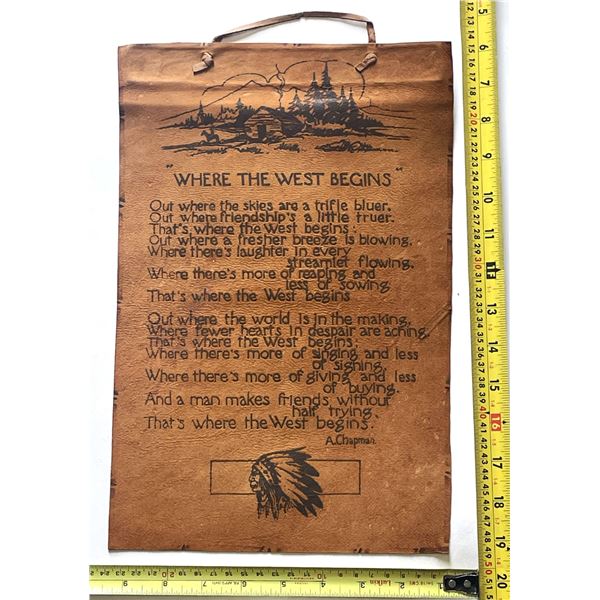 "WHERE THE WEST BEGINS"
Out where the skies are a trifle bluer.
Out where friendship's a little truer.
That's where the West begins:
Out where a fresher breeze is blowing,
Where there's laughter in every
streamlet flowing,
Where there's more of reaping and
less of sowing
That's where the West begins
Out where the world is in the making,
Where fewer hearts in despair are aching,
That's where the West begins;
Where there's more of singing and less
of sighing,
Where there's more of giving and less
of buying.
And a man makes friends without
half trying.
That's where the West begins.
A. Chapman.
5
6
7
8
9
10
11
1F
13
14
15
16
17
18
19
20
9
8
7
6
5
4
3
2
1
Lufkin